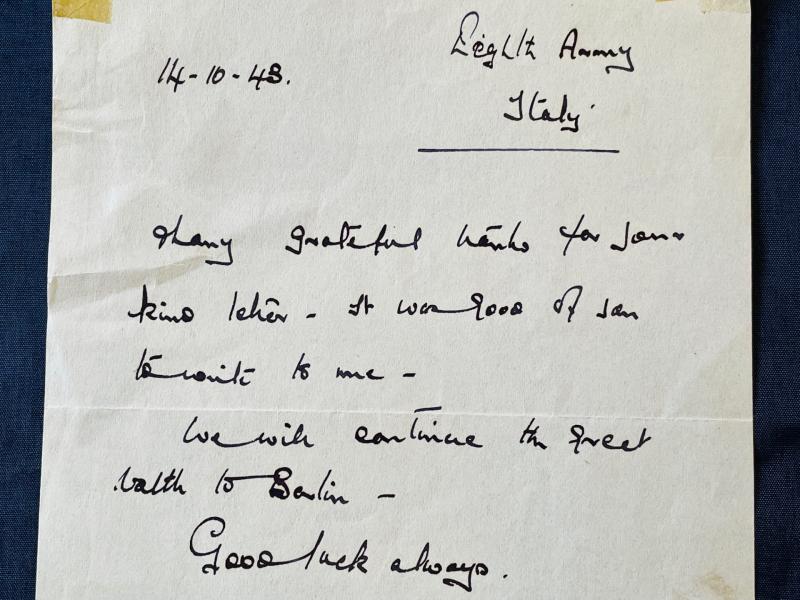 Eighth Army
14-10-43.
Italy
Many grateful thanks for your
kind letter - It was good of you
to write to me -
We will continue the great
to Berlin -
Good luck always.